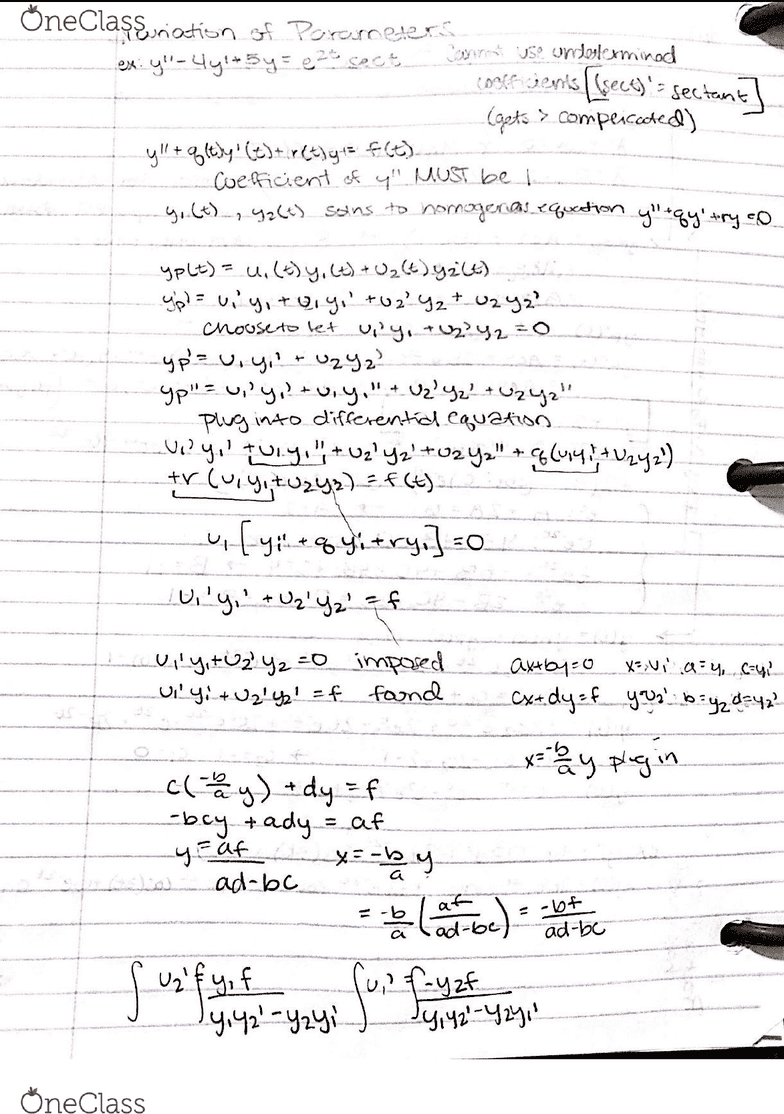 OneClass
Variation of Parameters
ex: y'' - 4y' + 5y = e^2t sect Cannot use undetermined
coefficients [(sect)' = sectant]
(gets > compercated)
y'' + q(t)y'(t) + r(t)y = f(t)
Coefficient of y'' MUST be 1
y₁(t), y₂(t) solns to homogenous equation y'' + qy' + ry = 0
yp(t) = u₁(t)y₁(t) + u₂(t)y₂(t)
yp' = u₁'y₁ + u₁y₁' + u₂'y₂ + u₂y₂'
choose to let u₁'y₁ + u₂'y₂ = 0
yp' = u₁y₁' + u₂y₂'
yp'' = u₁'y₁' + u₁y₁'' + u₂'y₂' + u₂y₂''
plug into differential equation
u₁'y₁' + u₁y₁'' + u₂'y₂' + u₂y₂'' + q(u₁y₁' + u₂y₂')
+r(u₁y₁ + u₂y₂) = f(t)
u₁[y₁'' + qy₁' + ry₁] = 0
u₁'y₁' + u₂'y₂' = f
u₁'y₁ + u₂'y₂ = 0 imposed ax+by=0 x=u₁' a=y₁ c=y₁'
u₁'y₁' + u₂'y₂' = f found cx+dy=f y=u₂' b=y₂ d=y₂'
x = -b/a y plug in
c(-b/a y) + dy = f
-bcy + ady = af
y = af/(ad-bc) x = -b/a y
= -b/a (af/(ad-bc)) = -bf/(ad-bc)
∫u₂' = ∫ y₁f/(y₁y₂' - y₂y₁') ∫u₁' = ∫ -y₂f/(y₁y₂' - y₂y₁')
OneClass